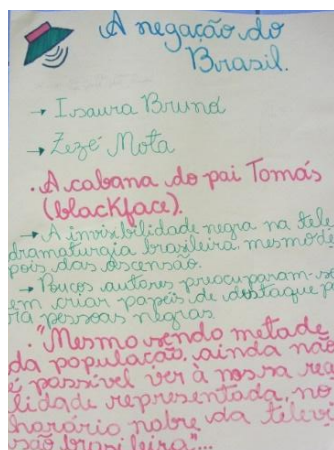 A negação do
Brasil.
→ Isaura Bruno
→ Zezé Mota
. A cabana do pai Tomás
(blackface).
→ A invisibilidade negra na tele
dramaturgia brasileira mesmo de
pois das ascensão.
→ Poucos autores preocuparam-s
em criar papéis de destaque p
ra pessoas negras.
. "Mesmo sendo metade
da população, ainda não
é passível ver à nossa rea
lidade representada, no
horário nobre da televi
são brasileira"...